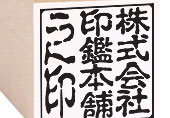 株式会社
印鑑本舗
うえ印